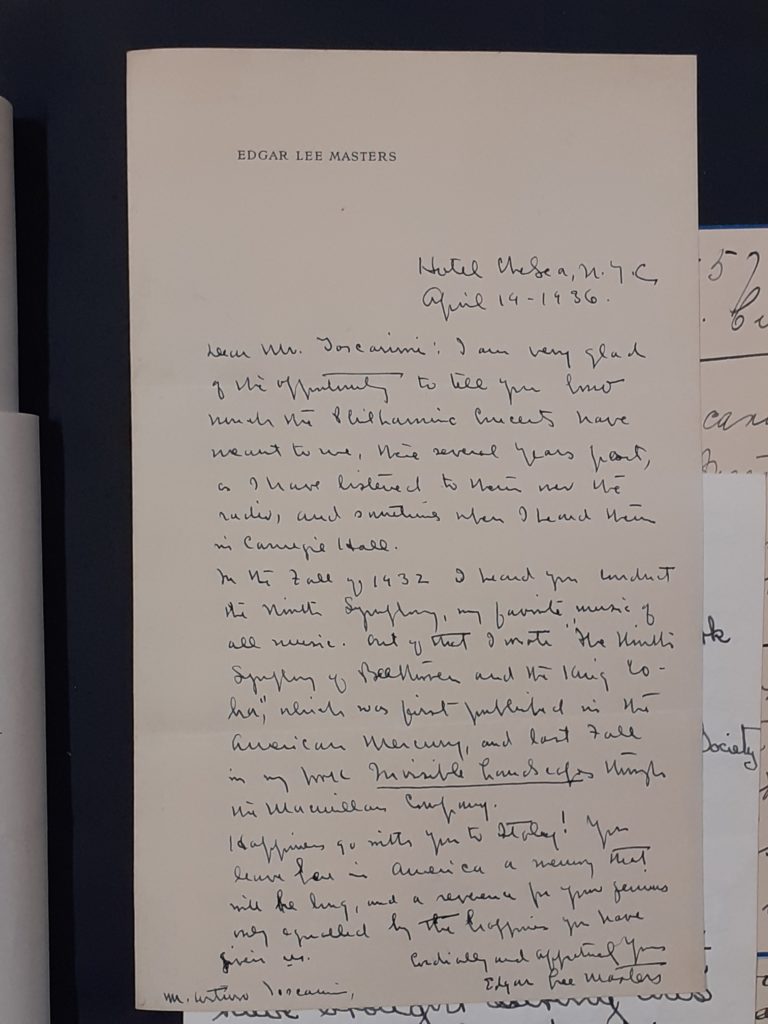 EDGAR LEE MASTERS
Hotel Chelsea, N.Y.C.
April 14-1936.
Dear Mr. Toscanini: I am very glad
of the opportunity to tell you how
much the Philharmonic Concerts have
meant to me, these several years past,
as I have listened to them over the
radio, and sometimes when I heard them
in Carnegie Hall.
In the Fall of 1932 I heard you conduct
the Ninth Symphony, my favorite music of
all music. Out of that I wrote "The Ninth
Symphony of Beethoven and the King Co-
bra", which was first published in the
American Mercury, and last Fall
in my book Invisible Landscapes through
the Macmillan Company.
Happiness go with you to Italy! You
leave here in America a memory that
will be long, and a reverence for your genius
only equalled by the happiness you have
given us.
Cordially and Yours
Edgar Lee Masters
M. Arturo Toscanini,
57
Society
have brought